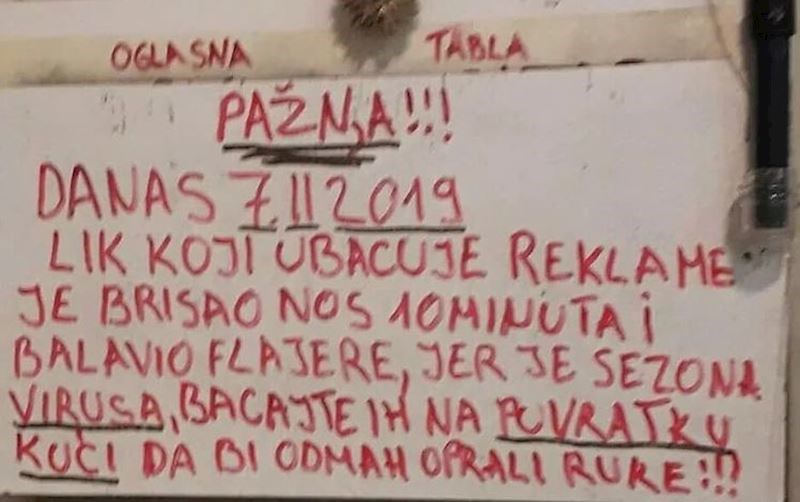 OGLASNA TABLA
PAŽNJA!!!
DANAS 7.II 2019
LIK KOJI UBACUJE REKLAME
JE BRISAO NOS 10 MINUTA I
BALAVIO FLAJERE, JER JE SEZONA
VIRUSA, BACAJTE IH NA POVRATKU
KUĆI DA BI ODMAH OPRALI RUKE!!?